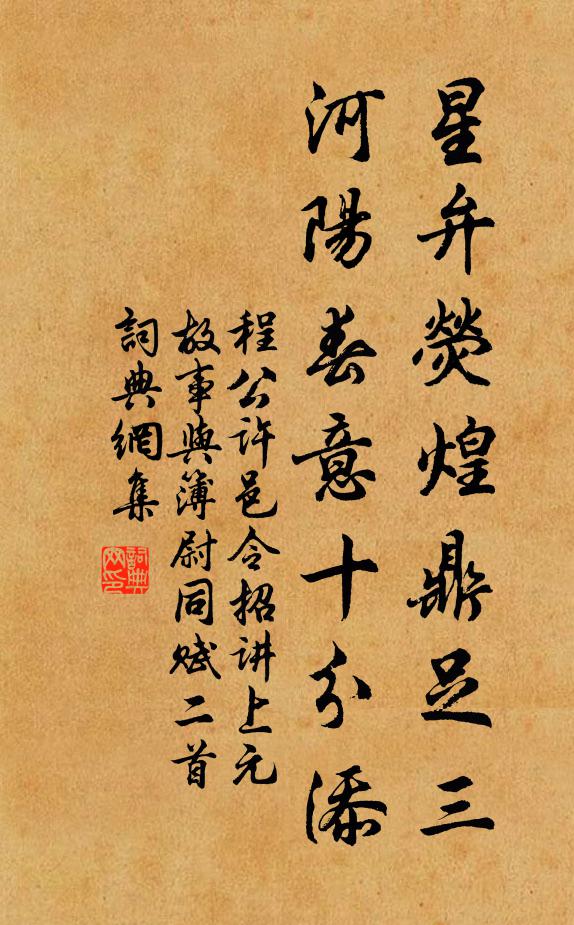 星弁熒煌鼎足三
河陽春意十分添
程公許邑令招讲上元
故事與簿尉同赋二首
詞典網集
詞典
网印